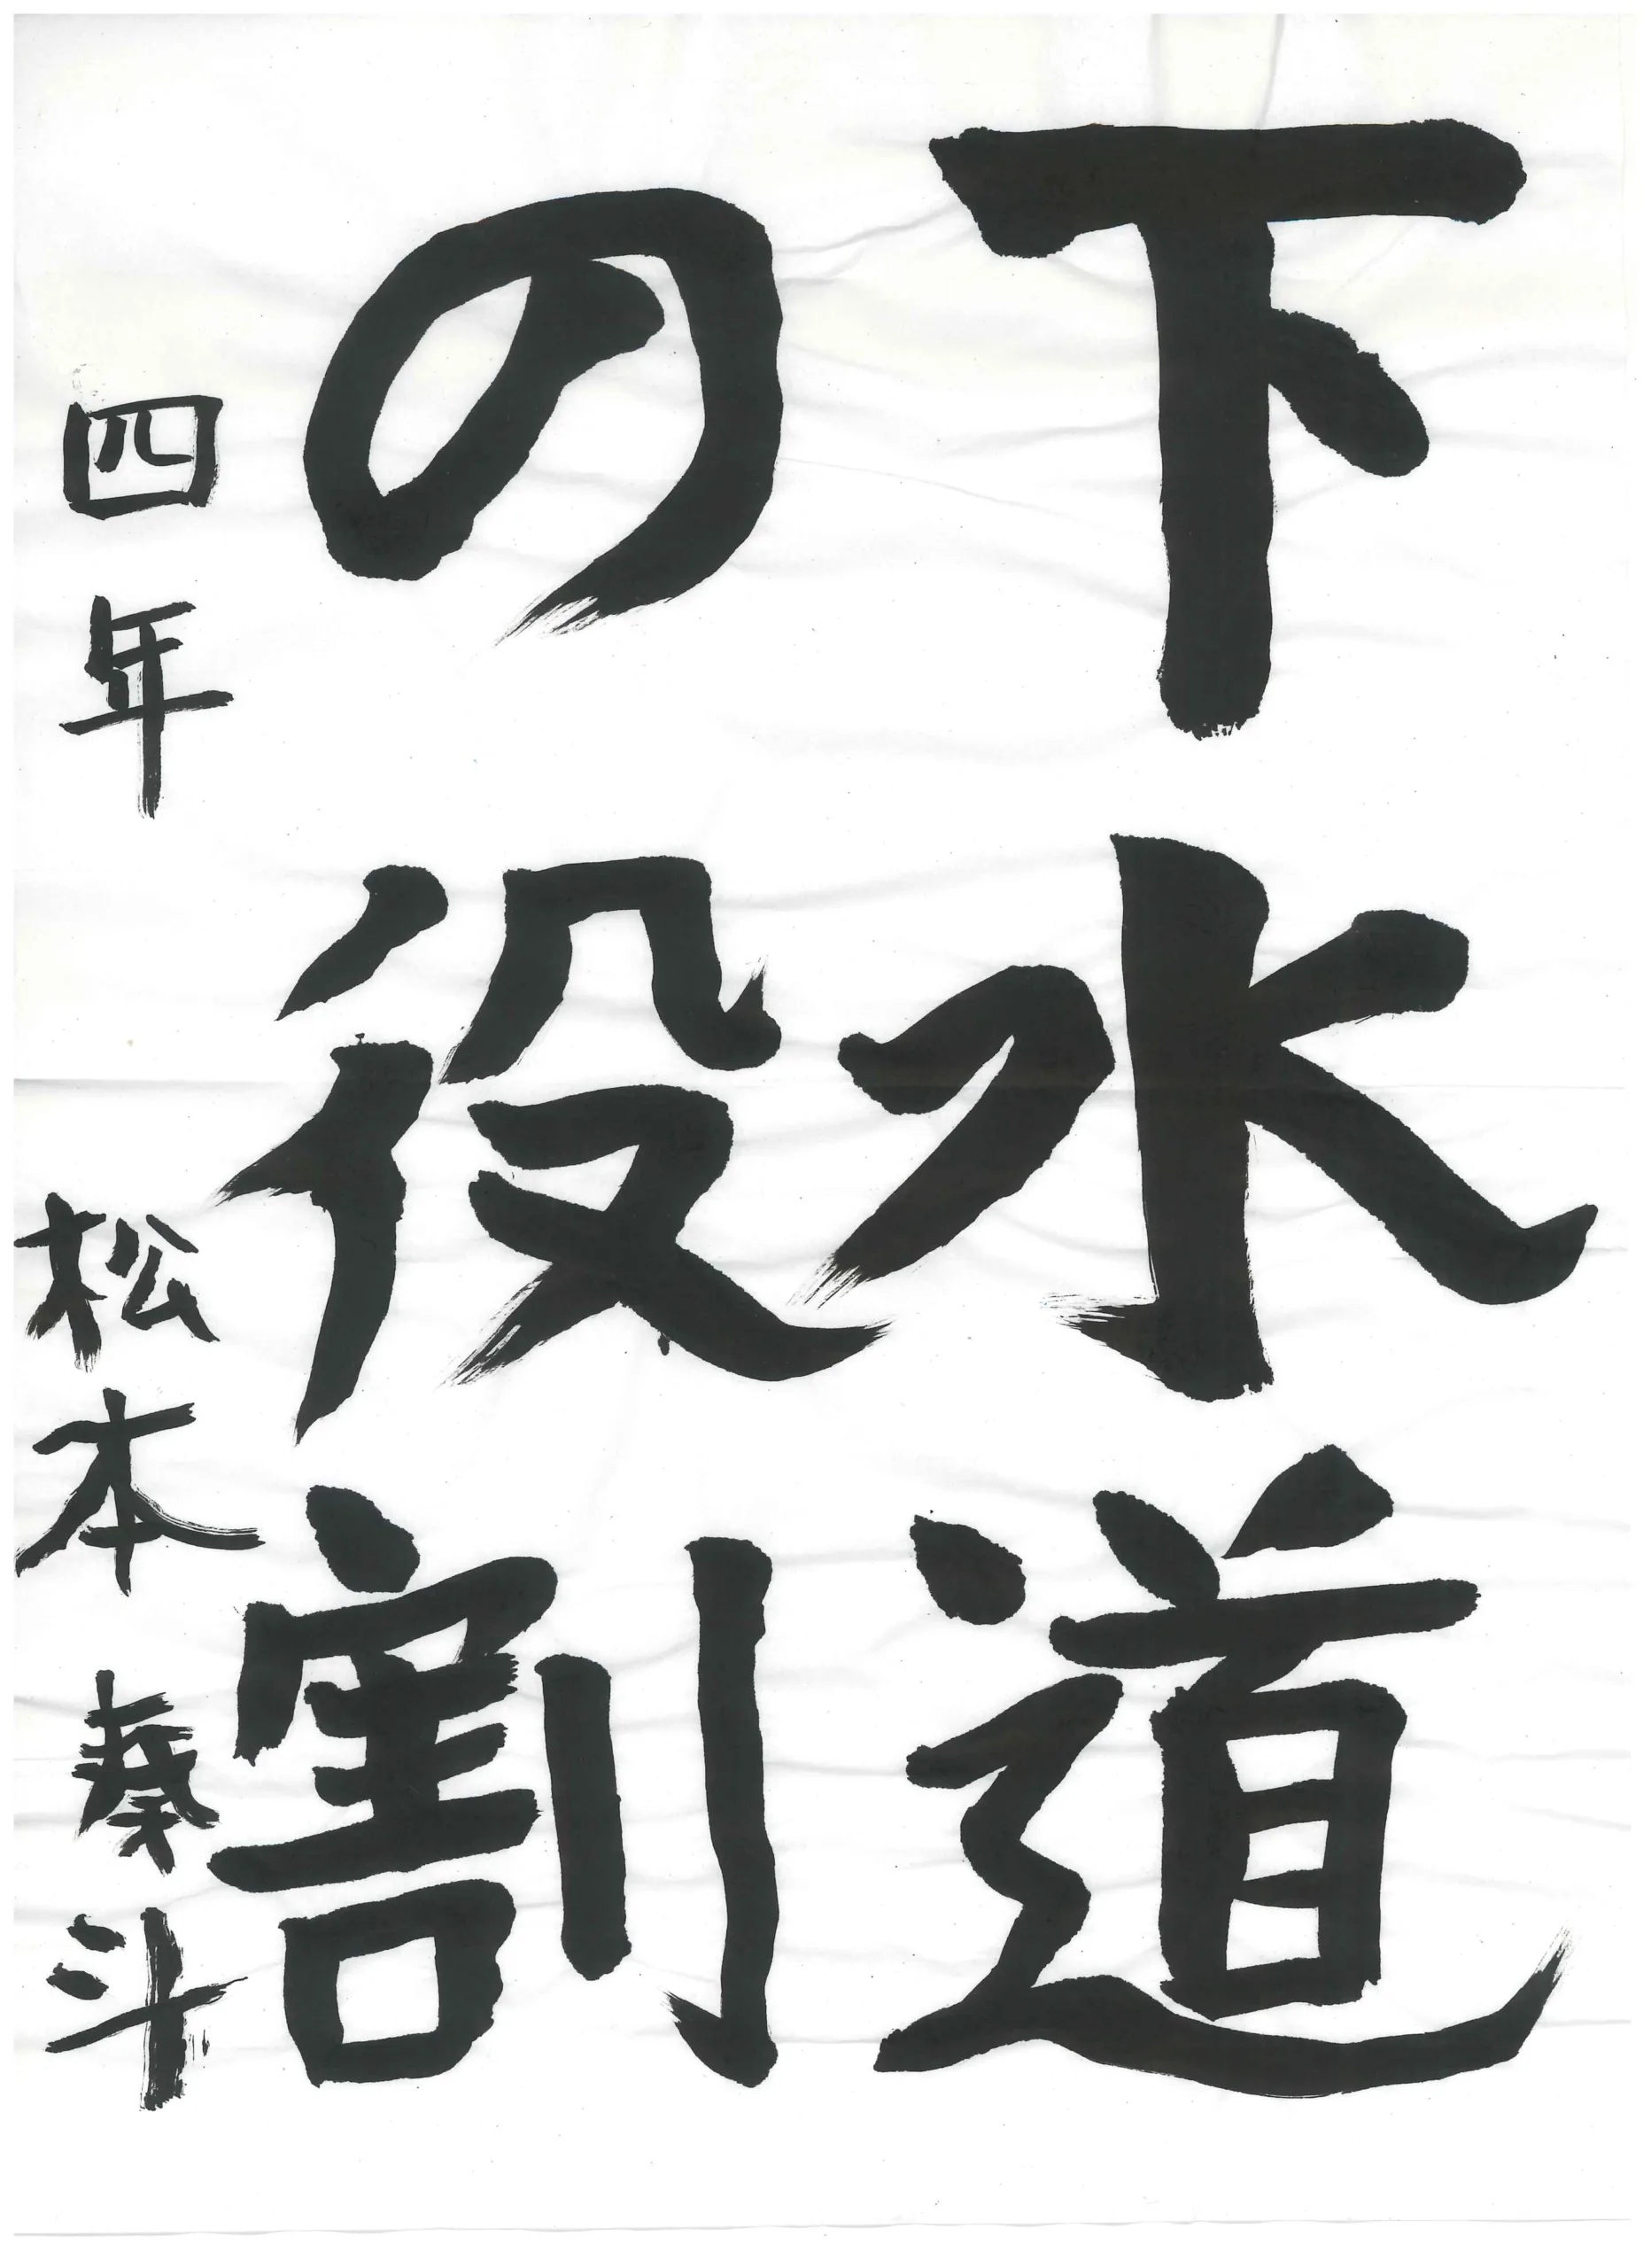 下水道
の役割
四年 松本 奏斗